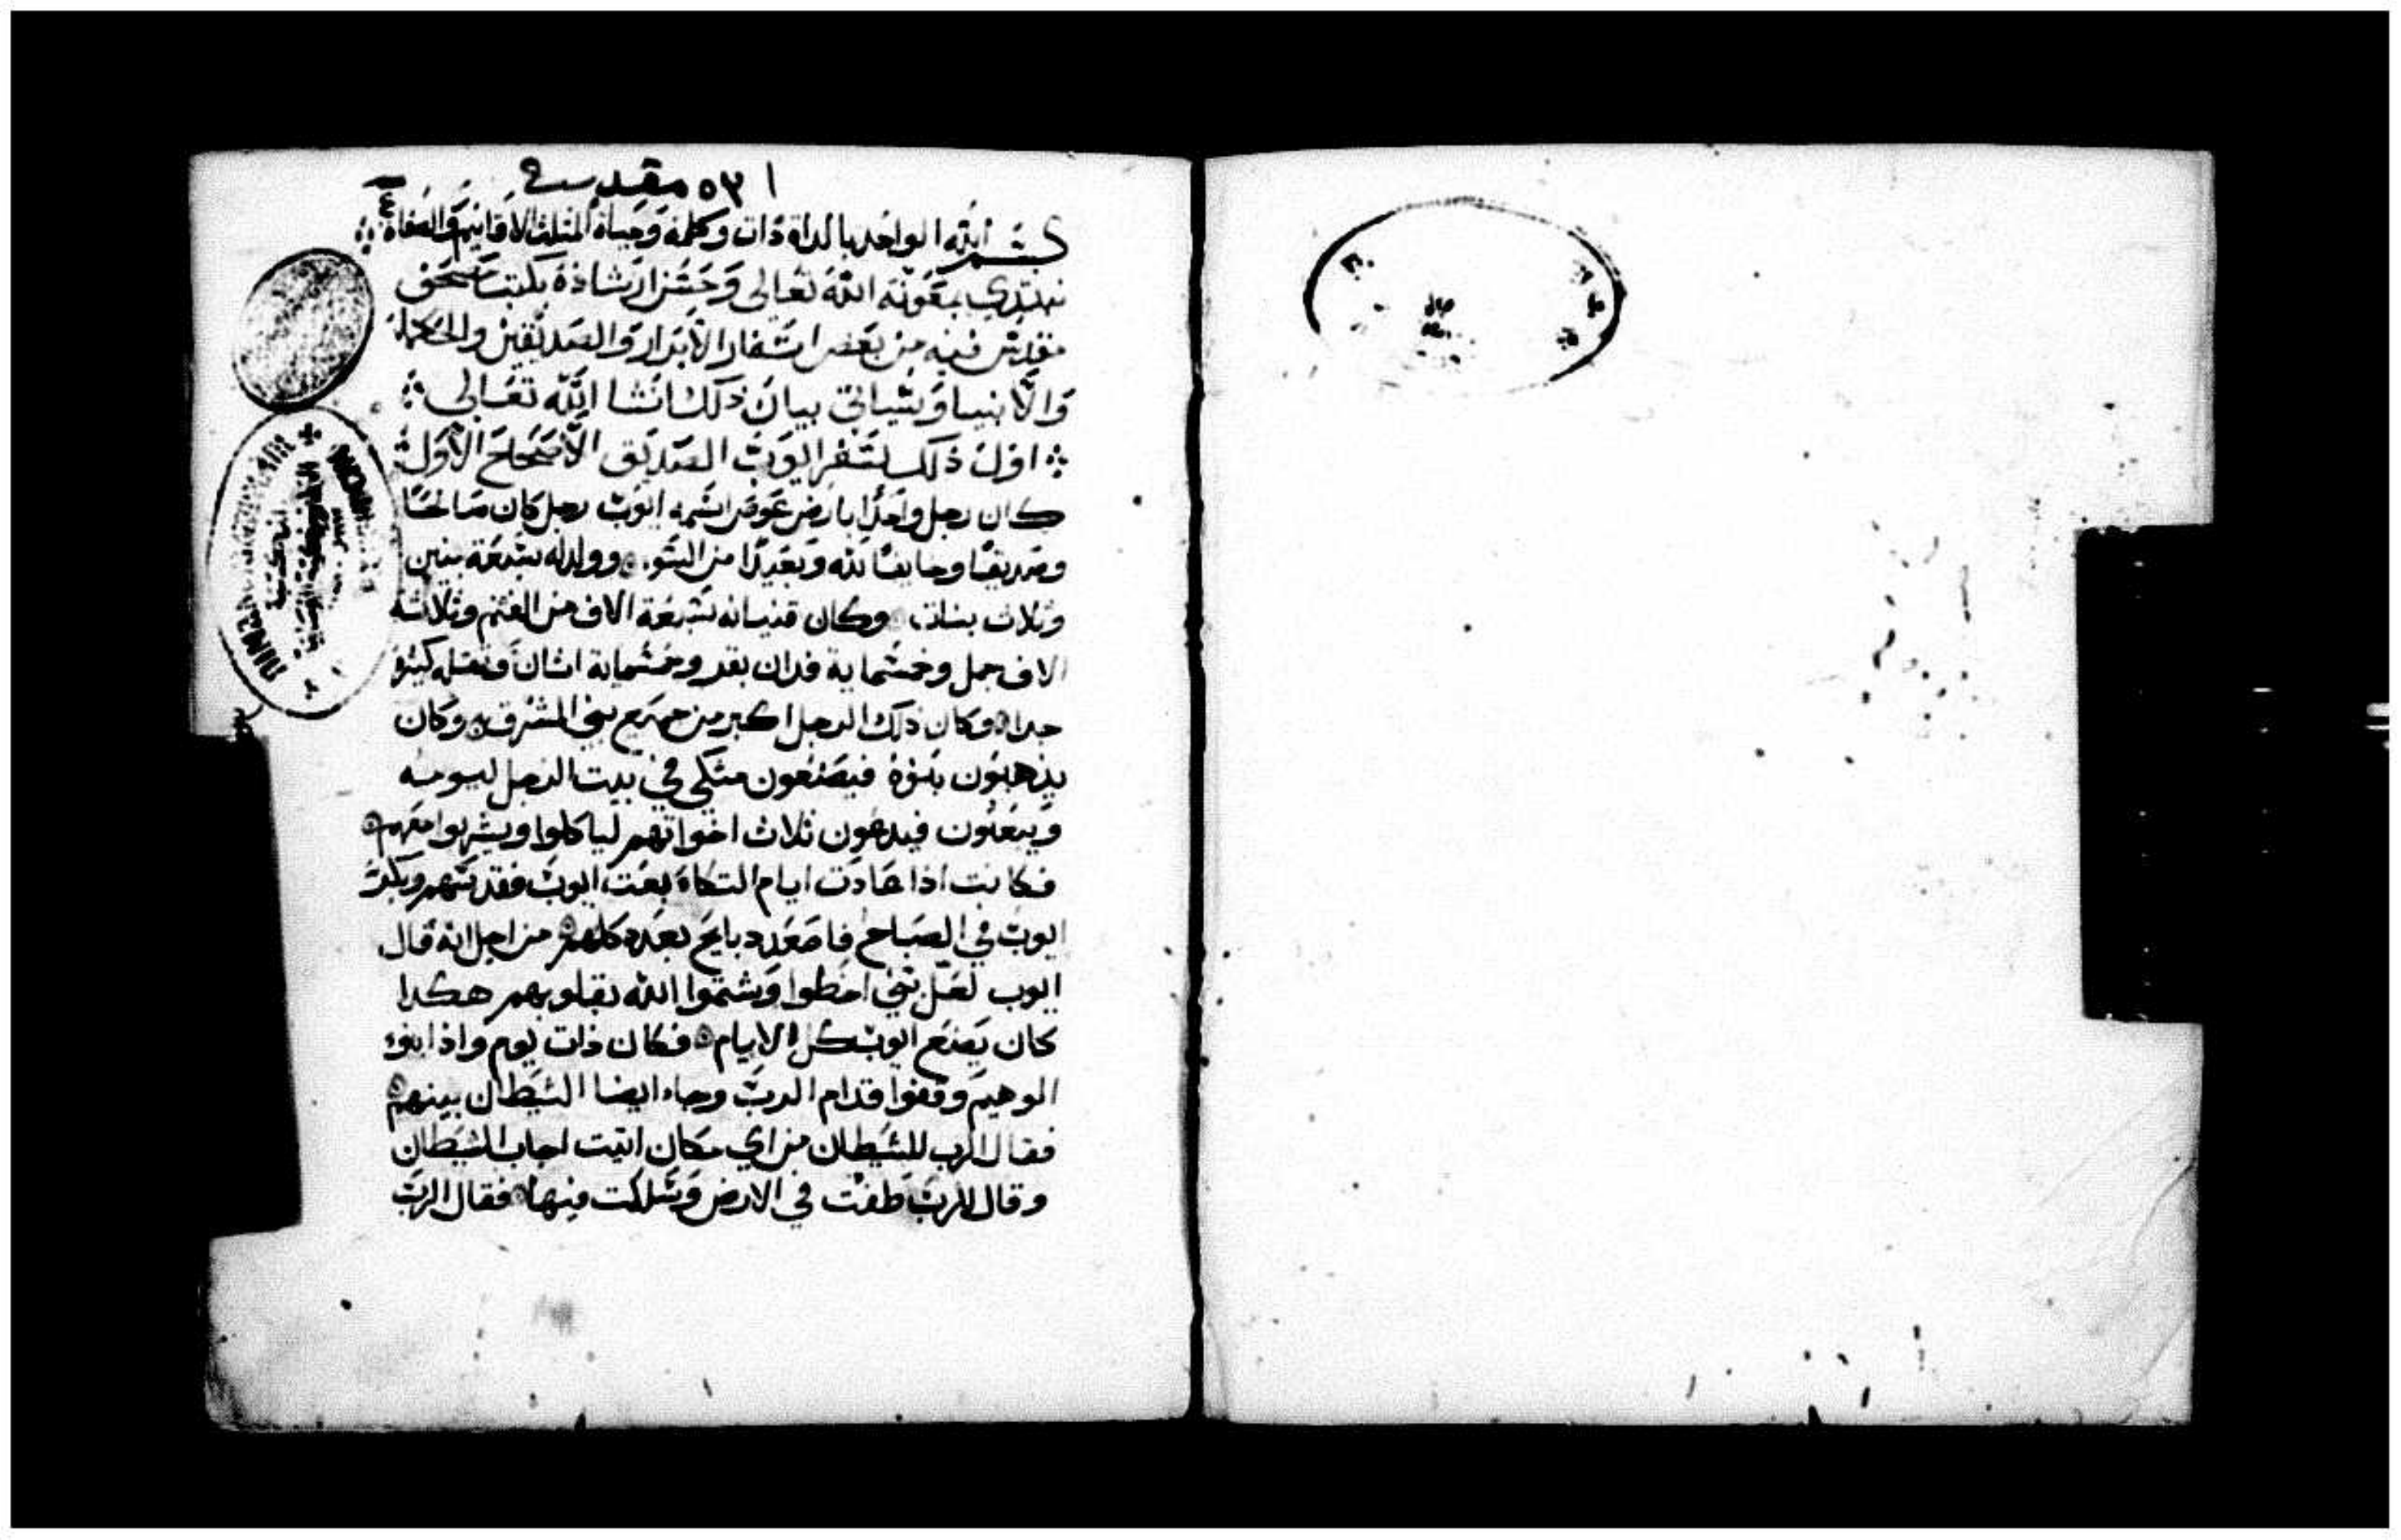 ٥٣ مقدسة
بسم الله الواحد بالداة ذات وكلمة وحياة المثلث الاقانيم والصفاة
نبتدي بمعونة الله تعالى وحسن ارشاده بكتب مصحف
مقدس فيه من بعض اسفار الابرار والصديقين والحكما
والانبيا وسياتي بيان ذلك انشا الله تعالى
اول ذلك سفر ايوب الصديق الاصحاح الاول
كان رجل واحدا بارض عوص اسمه ايوب رجل كان صالحا
وصديقا وخايفا لله وبعيدا من السو وولد له سبعة بنين
وثلاث بنات وكان قنيانه سبعة الاف من الغنم وثلاثة
الاف جمل وخمسماية فدان بقر وخمسماية اتان كثير
جدا وكان ذلك الرجل اكبر من جميع بني المشرق وكان
يذهبون بنوه فيصنعون متكي في بيت الرجل ليومه
ويبعتون فيدعون ثلاث اخواتهم لياكلوا ويشربوا معهم
فكانت اذا عادت ايام التكاة بعت ايوب فقدسهم وبكر
ايوب في الصباح فاصعد دبايح بعدد كلهم من اجل انه قال
ايوب لعل بني اخطوا وشتموا الله بقلوبهم هكدا
كان يصنع ايوب كل الايام فكان ذات يوم واذا بنوا
الوهيم وقفوا قدام الرب وجاء ايضا الشيطان بينهم
فقال الرب للشيطان من اي مكان اتيت اجاب الشيطان
وقال للرب طفت في الارض وسلكت فيها فقال الرب